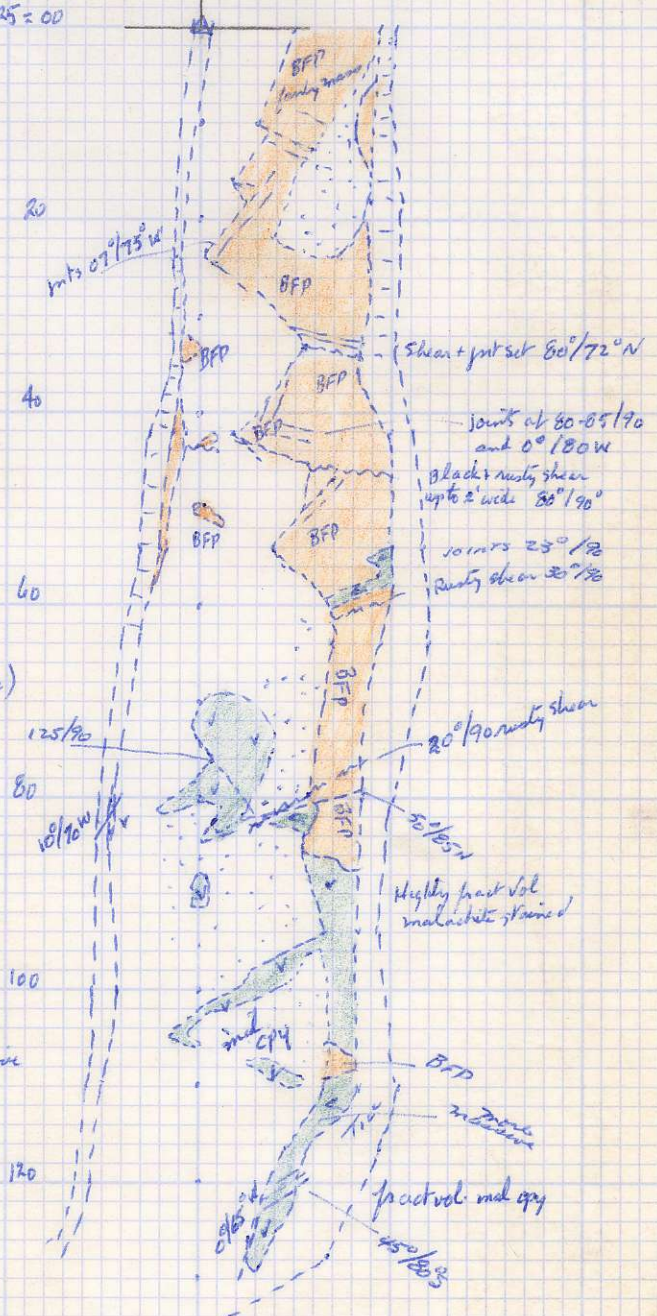 25=00
BFP
20
jnts 07°/75°W
BFP
BFP
Shear + jnt set 80°/72°N
BFP
40
BFP
joints at 80-85/90
and 0°/80W
Black + rusty shear
up to 2' wide 80°/90°
BFP
BFP
Joints 23°/90
60
Rusty shear 30°/90
BFP
125/90
20°/90 rusty shear
80
BFP
10°/70W
50°/85N
Highly fract vol
malachite stained
100
mal cpy
BFP
more
massive
120
fract vol. mal cpy
45°/80S